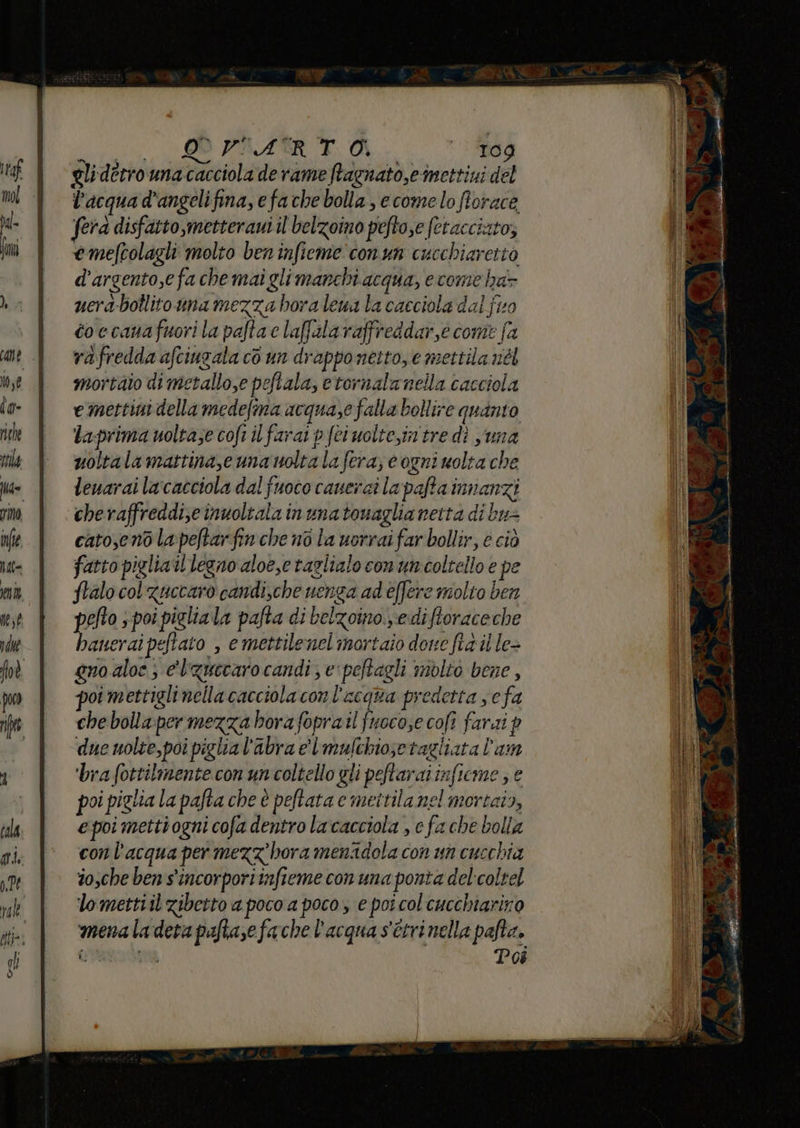 QVARTO. 109
gli dẽtro una cacciola de rame ſtagnato, e mettiui del
l'acqua d'angeli fina, e fa che bolla, e come lo ſtorace
ſerà disfatto, metteraui il belzoino peſto, e ſetacciato,
e meſcolagli molto ben inſieme con un cucchiaretto
d'argento, e fa che mai gli manchi acqua, e come ha-
uerà bollito una mezza hora leua la cacciola dal fuo
co e caua fuori la paſta e laſſala raffreddar, e come ſa
rà fredda aſciugala cõ un drappo netto, e mettila nel
mortaio di metallo, e peſtala, e tornala nella cacciola
e mettiui della medeſima acqua, e falla bollire quanto
la prima uolta, e coſi il farai p ſei uolte, in tre dì, una
uolta la mattina, e una uolta la ſera, e ogni uolta che
leuarai la cacciola dal fuoco cauerai la paſta innanzi
che raffreddi, e inuoltala in una touaglia netta di bu-
cato, e nõ la peſtar fin che nõ la uorrai far bollir, e ciò
fatto piglia il legno aloe, e taglialo con un coltello e pe
ſtalo col zuccaro candi, che uenga ad eſſere molto ben
peſto, poi piglia la paſta di belzoino, e di ſtorace che
hauerai peſtato, e mettile nel mortaio doue ſta il le-
gno aloe, e'l zuccaro candi, e peſtagli molto bene,
poi mettigli nella cacciola con l'acqua predetta, e fa
che bolla per mezza hora ſopra il fuoco, e coſi farai p
due uolte, poi piglia l'ābra e'l muſchio, e tagliata l'am
bra ſottilmente con un coltello gli peſtarai inſieme, e
poi piglia la paſta che è peſtata e mettila nel mortaio,
e poi metti ogni coſa dentro la cacciola, e fa che bolla
con l'acqua per mezz'hora menãdola con un cucchia
io, che ben s'incorpori inſieme con una ponta del coltel
lo metti il zibetto a poco a poco, e poi col cucchiariro
mena la deta paſta, e fa che l'acqua s'ẽtri nella paſta.
Poi